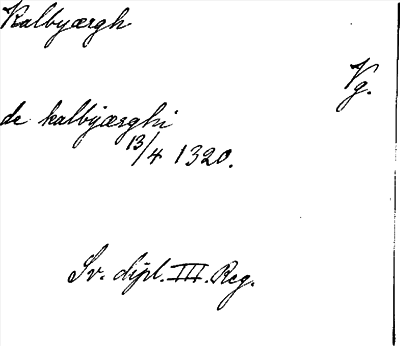 Kalbyærgh
Vg.
de kalbyærghi
13/4 1320.
Sv. dipl. III. Reg.